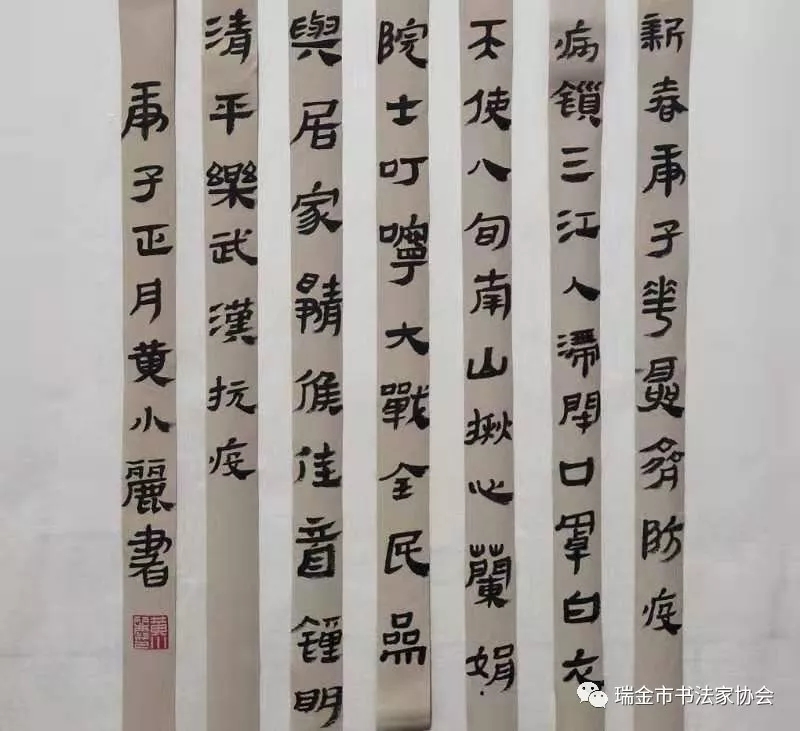 新春庚子華夏齊防疫
病鎖三江人滯閉口罩白衣
天使八旬南山揪心蘭娟
院士叮嚀大戰全民參
與居家靜候佳音鍾明
清平樂武漢抗疫
庚子正月黃小麗書
瑞金市书法家协会